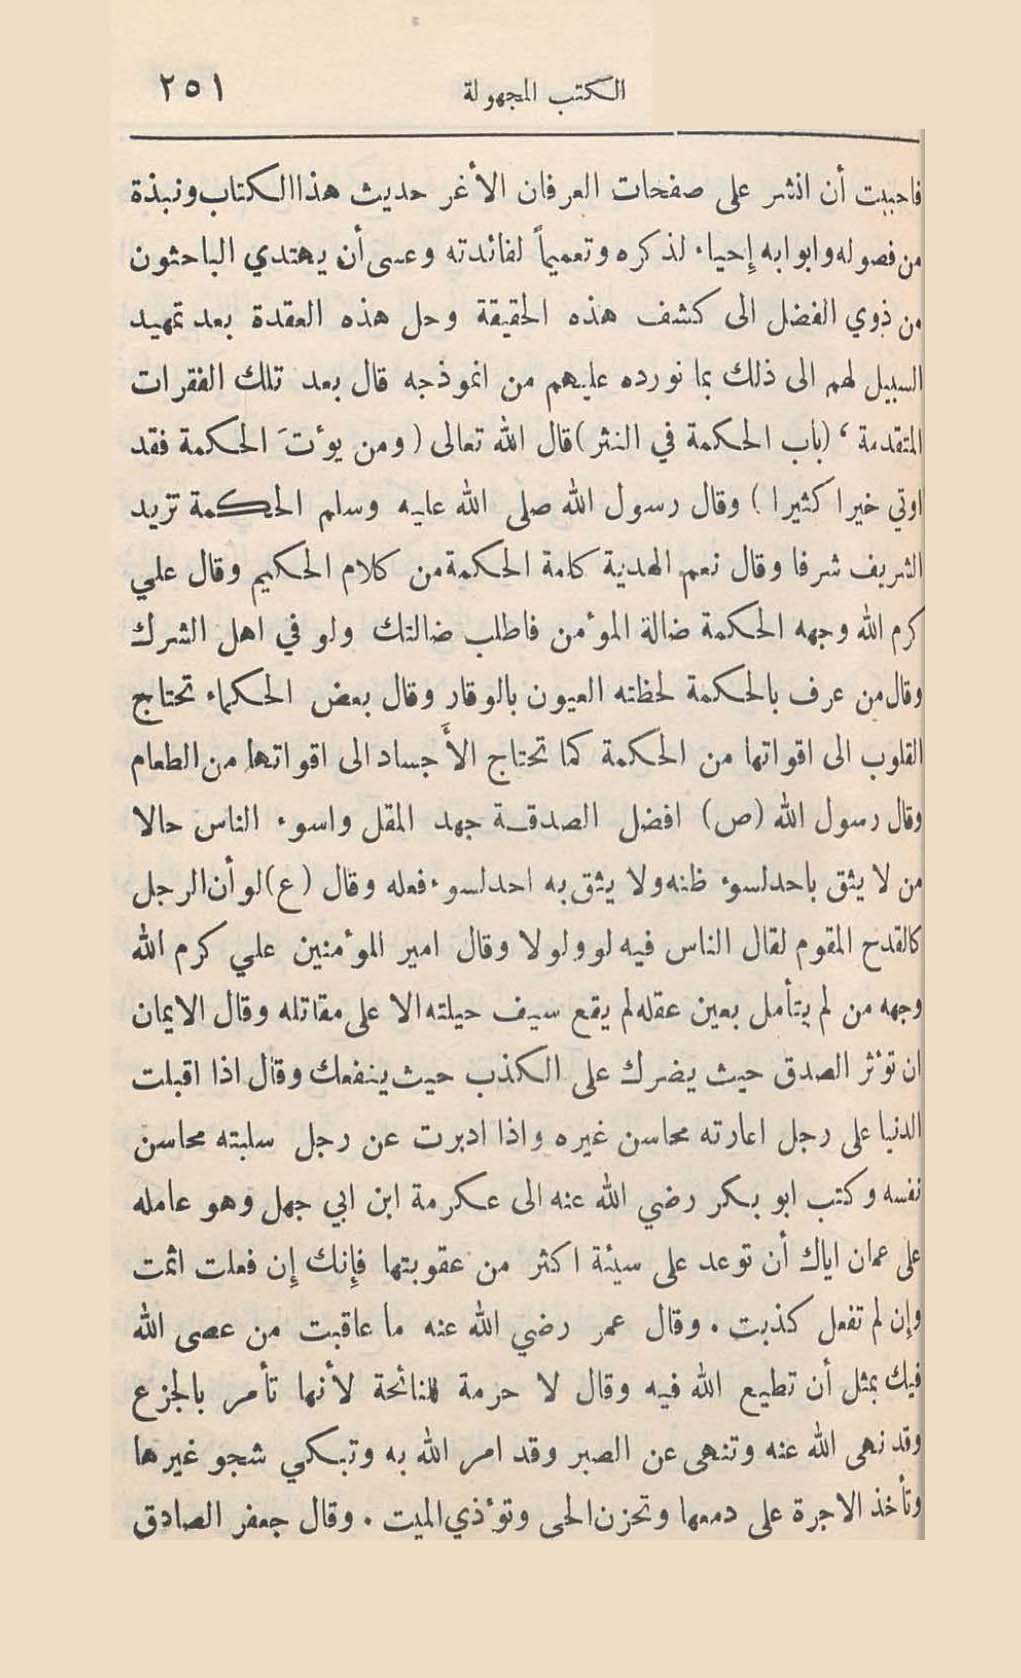 الكتب المجهولة ٢٥١
فاحببت أن انشر على صفحات العرفان الأغر حديث هذا الكتاب ونبذة
من فصوله وابوابه إحياء لذكره وتعميماً لفائدته وعسى أن يهتدي الباحثون
من ذوي الفضل الى كشف هذه الحقيقة وحل هذه العقدة بعد تمهيد
السبيل لهم الى ذلك بما نورده عليهم من انموذجه قال بعد تلك الفقرات
المتقدمة ، (باب الحكمة في النثر) قال الله تعالى (ومن يوٴتَ الحكمة فقد
اوتي خيرا كثيرا) وقال رسول الله صلى الله عليه وسلم الحكمة تزيد
الشريف شرفا وقال نعم الهدية كلمة الحكمة من كلام الحكيم وقال علي
كرم الله وجهه الحكمة ضالة الموٴمن فاطلب ضالتك ولو في اهل الشرك
وقال من عرف بالحكمة لحظته العيون بالوقار وقال بعض الحكماء تحتاج
القلوب الى اقواتها من الحكمة كما تحتاج الأَجساد الى اقواتها من الطعام
وقال رسول الله (ص) افضل الصدقة جهد المقل واسوء الناس حالا
من لا يثق باحد لسوء ظنه ولا يثق به احد لسوء فعله وقال (ع) لو أن الرجل
كالقدح المقوم لقال الناس فيه لو ولولا وقال امير الموٴمنين علي كرم الله
وجهه من لم يتأمل بعين عقله لم يقع سيف حيلته الا على مقاتله وقال الايمان
ان توٴثر الصدق حيث يضرك على الكذب حيث ينفعك وقال اذا اقبلت
الدنيا على رجل اعارته محاسن غيره واذا ادبرت عن رجل سلبته محاسن
نفسه وكتب ابو بكر رضي الله عنه الى عكرمة ابن ابي جهل وهو عامله
على عمان اياك أن توعد على سيئة اكثر من عقوبتها فإنك إن فعلت اثمت
وإن لم تفعل كذبت . وقال عمر رضي الله عنه ما عاقبت من عصى الله
فيك بمثل أن تطيع الله فيه وقال لا حرمة للنائحة لأنها تأمر بالجزع
وقد نهى الله عنه وتنهى عن الصبر وقد امر الله به وتبكي شجو غيرها
وتأخذ الاجرة على دمعها وتحزن الحي وتوٴذي الميت . وقال جعفر الصادق